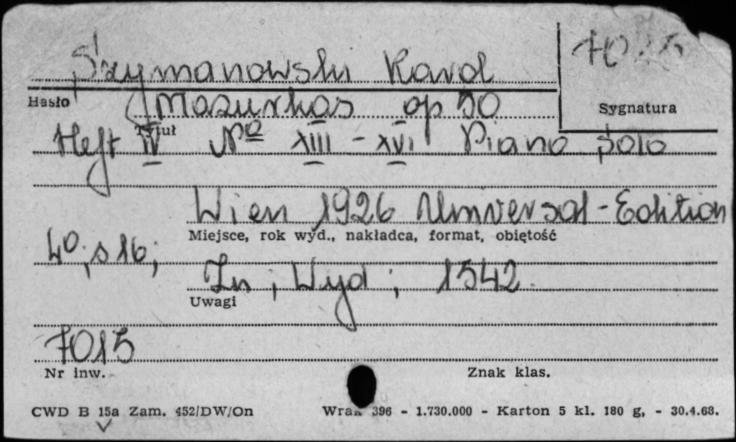 Szymanowski Karol
Hasło
Mazurkas op 50
Sygnatura
Tytuł
Heft IV No XIII - XVI Piano Solo
Wien 1926 Universal-Edition
Miejsce, rok wyd., nakładca, format, objętość
4o; s 16;
Zn; Wyd; 1542.
Uwagi
7015
Nr inw.
Znak klas.
CWD B 15a Zam. 452/DW/On
396 - 1.730.000 - Karton 5 kl. 180 g, - 30.4.68.